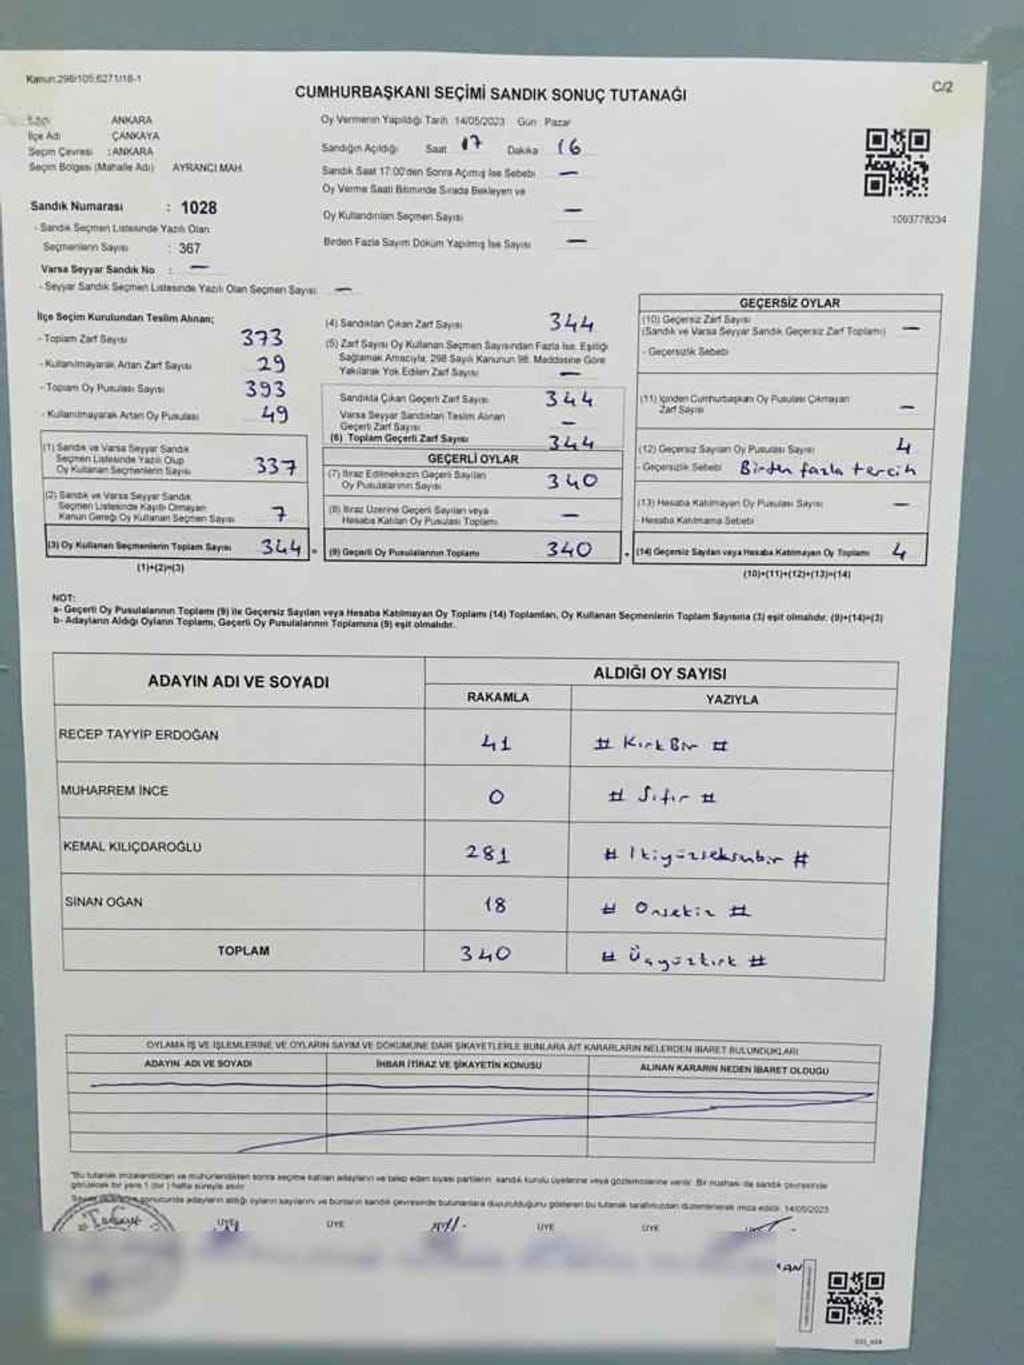 Kanun:298/105:6271/18-1
C/2
CUMHURBAŞKANI SEÇİMİ SANDIK SONUÇ TUTANAĞI
ANKARA
İlçe Adı ÇANKAYA
Seçim Çevresi : ANKARA
Seçim Bölgesi (Mahalle Adı) AYRANCI MAH.
Oy Vermenin Yapıldığı Tarih :14/05/2023 Gün : Pazar
Sandığın Açıldığı Saat 17 Dakika 16
Sandık Saat 17:00'den Sonra Açımış İse Sebebi —
Oy Verme Saati Bitiminde Sırada Bekleyen ve
Oy Kullandırılan Seçmen Sayısı —
Birden Fazla Sayım Döküm Yapılmış İse Sayısı —
1093778234
Sandık Numarası : 1028
- Sandık Seçmen Listesinde Yazılı Olan
Seçmenlerin Sayısı : 367
Varsa Seyyar Sandık No : —
- Seyyar Sandık Seçmen Listesinde Yazılı Olan Seçmen Sayısı: —
İlçe Seçim Kurulundan Teslim Alınan;
- Toplam Zarf Sayısı 373
- Kullanılmayarak Artan Zarf Sayısı 29
- Toplam Oy Pusulası Sayısı 393
- Kullanılmayarak Artan Oy Pusulası 49
(1) Sandık ve Varsa Seyyar Sandık
Seçmen Listesinde Yazılı Olup
Oy Kullanan Seçmenlerin Sayısı 337
(2) Sandık ve Varsa Seyyar Sandık
Seçmen Listesinde Kayıtlı Olmayan
Kanun Gereği Oy Kullanan Seçmen Sayısı 7
(3) Oy Kullanan Seçmenlerin Toplam Sayısı 344 =
(1)+(2)=(3)
(4) Sandıktan Çıkan Zarf Sayısı 344
(5) Zarf Sayısı Oy Kullanan Seçmen Sayısından Fazla İse, Eşitliği
Sağlamak Amacıyla, 298 Sayılı Kanunun 98. Maddesine Göre
Yakılarak Yok Edilen Zarf Sayısı —
Sandıkta Çıkan Geçerli Zarf Sayısı 344
Varsa Seyyar Sandıktan Teslim Alınan
Geçerli Zarf Sayısı —
(6) Toplam Geçerli Zarf Sayısı 344
GEÇERLİ OYLAR
(7) İtiraz Edilmeksizin Geçerli Sayılan
Oy Pusulalarının Sayısı 340
(8) İtiraz Üzerine Geçerli Sayılan veya
Hesaba Katılan Oy Pusulası Toplamı —
(9) Geçerli Oy Pusulalarının Toplamı 340 +
GEÇERSİZ OYLAR
(10) Geçersiz Zarf Sayısı
(Sandık ve Varsa Seyyar Sandık Geçersiz Zarf Toplamı) —
- Geçersizlik Sebebi
(11) İçinden Cumhurbaşkanı Oy Pusulası Çıkmayan
Zarf Sayısı —
(12) Geçersiz Sayılan Oy Pusulası Sayısı 4
- Geçersizlik Sebebi Birden fazla tercih
(13) Hesaba Katılmayan Oy Pusulası Sayısı —
- Hesaba Katılmama Sebebi
(14) Geçersiz Sayılan veya Hesaba Katılmayan Oy Toplamı 4
(10)+(11)+(12)+(13)=(14)
NOT:
a- Geçerli Oy Pusulalarının Toplamı (9) ile Geçersiz Sayılan veya Hesaba Katılmayan Oy Toplamı (14) Toplamları, Oy Kullanan Seçmenlerin Toplam Sayısına (3) eşit olmalıdır. (9)+(14)=(3)
b- Adayların Aldığı Oyların Toplamı, Geçerli Oy Pusulalarının Toplamına (9) eşit olmalıdır.
ADAYIN ADI VE SOYADI
ALDIĞI OY SAYISI
RAKAMLA YAZIYLA
RECEP TAYYİP ERDOĞAN 41 # Kırk Bir #
MUHARREM İNCE 0 # Sıfır #
KEMAL KILIÇDAROĞLU 281 # İkiyüzseksenbir #
SİNAN OĞAN 18 # Onsekiz #
TOPLAM 340 # Üçyüzkırk #
OYLAMA İŞ VE İŞLEMLERİNE VE OYLARIN SAYIM VE DÖKÜMÜNE DAİR ŞİKAYETLERLE BUNLARA AİT KARARLARIN NELERDEN İBARET BULUNDUKLARI
ADAYIN ADI VE SOYADI İHBAR İTİRAZ VE ŞİKAYETİN KONUSU ALINAN KARARIN NEDEN İBARET OLDUĞU
"Bu tutanak imzalandıktan ve mühürlendikten sonra seçime katılan adayların ve talep eden siyasi partilerin sandık kurulu üyelerine veya gözlemcilerine verilir. Bir nüshası da sandık çevresinde
görülecek bir yere 1 (bir) hafta süreyle asılır.
sonucunda adayların aldığı oyların sayılarını ve bunların sandık çevresinde bulunanlara duyurulduğunu gösteren bu tutanak tarafımızdan düzenlenerek imza edildi. 14/05/2023
ÜYE ÜYE ÜYE ÜYE